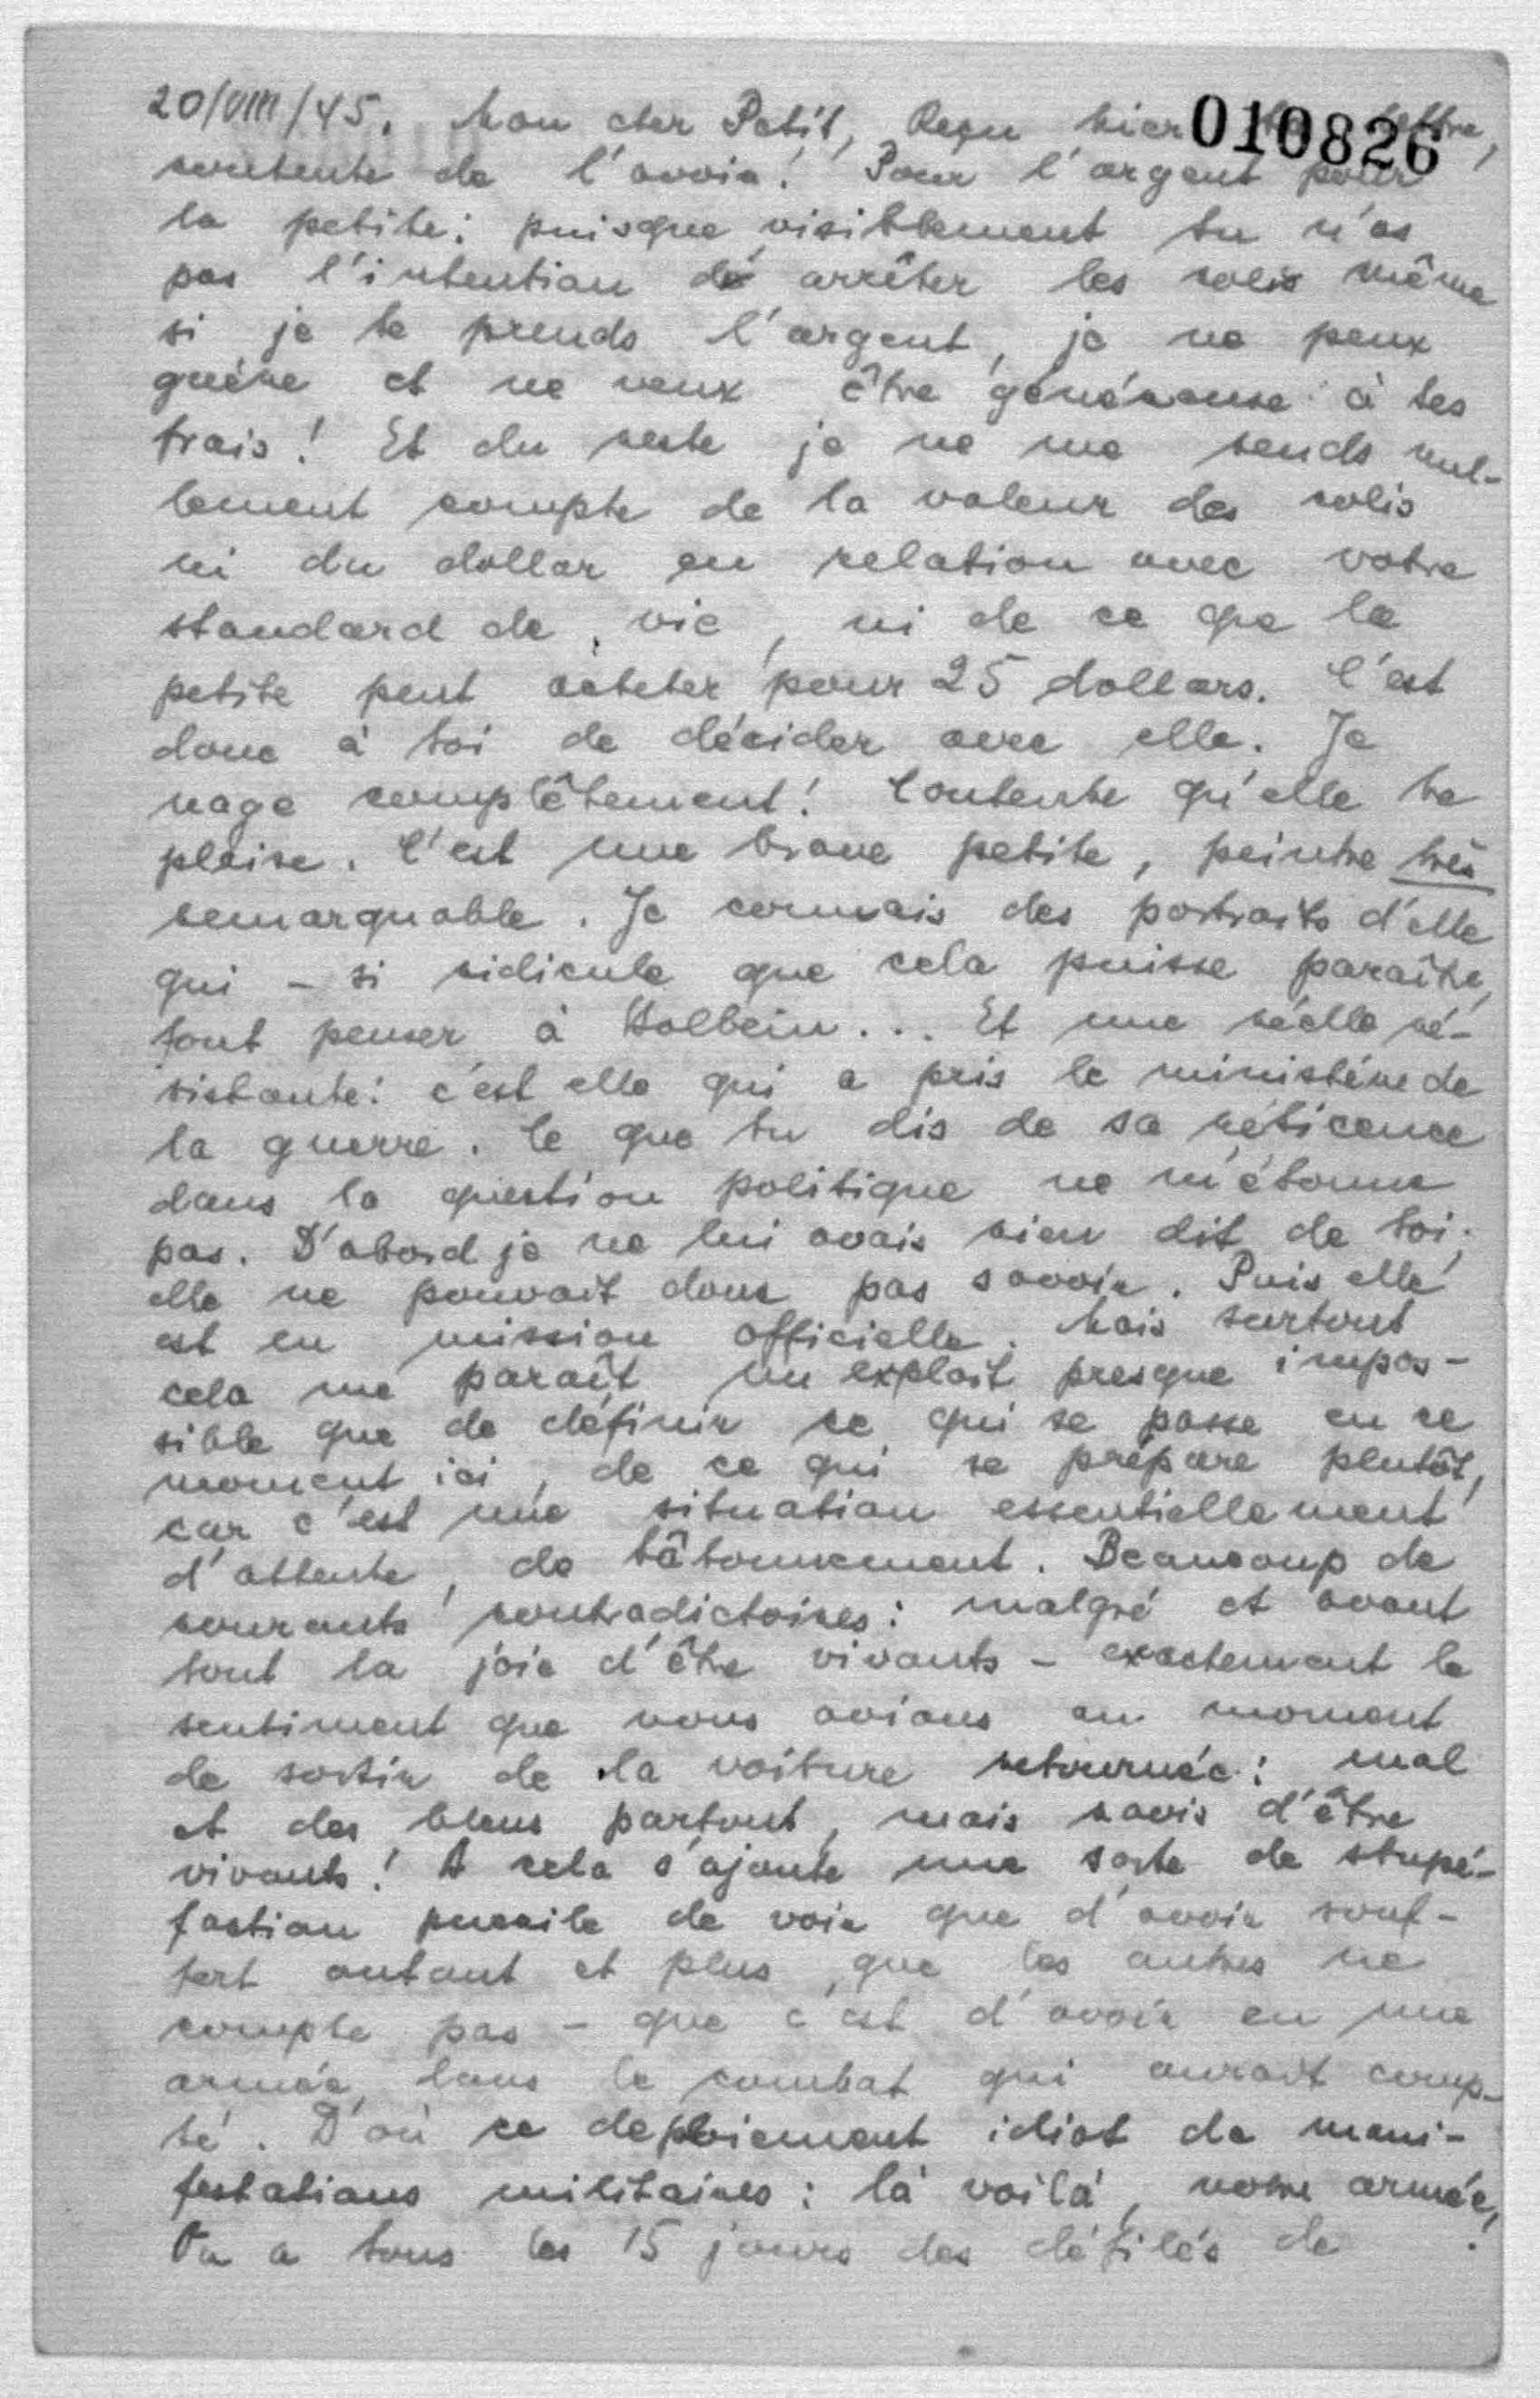 20/VIII/45. Mon cher Petit, Reçu hier ta lettre,
010826
contente de l'avoir! Pour l'argent pour
la petite: puisque visiblement tu n'as
pas l'intention de arrêter les colis même
si je te prends l'argent, je ne peux
guère et ne veux être généreuse à tes
frais! Et du reste je ne me rends nul-
lement compte de la valeur des colis
ni du dollar en relation avec votre
standard de vie, ni de ce que la
petite peut acheter pour 25 dollars. C'est
donc à toi de décider avec elle. Je
nage complêtement! Contente qu'elle te
plaise. C'est une brave petite, peintre très
remarquable. Je connais des portraits d'elle
qui - si ridicule que cela puisse paraître,
font penser à Holbein... Et une réelle ré-
sistante: c'est elle qui a pris le ministère de
la guerre. Ce que tu dis de sa réticence
dans la question politique ne m'étonne
pas. D'abord je ne lui avais rien dit de toi;
elle ne pouvait donc pas savoir. Puis elle
est en mission officielle. Mais surtout
cela me paraît un exploit presque impos-
sible que de définir ce qui se passe en ce
moment ici, de ce qui se prépare plutôt,
car c'est une situation essentiellement
d'attente, de tâtonnement. Beaucoup de
courants contradictoires: malgré et avant
tout la joie d'être vivants - exactement le
sentiment que nous avions au moment
de sortir de la voiture retournée: mal
et des bleus partout, mais ravis d'être
vivants! A cela s'ajoute une sorte de stupé-
faction puérile de voir que d'avoir souf-
fert autant et plus que les autres ne
compte pas - que c'est d'avoir eu une
armée dans le combat qui aurait comp-
té. D'où ce deploiement idiot de mani-
festations militaires: la voilà, notre armée!
On a tous les 15 jours des défilés de